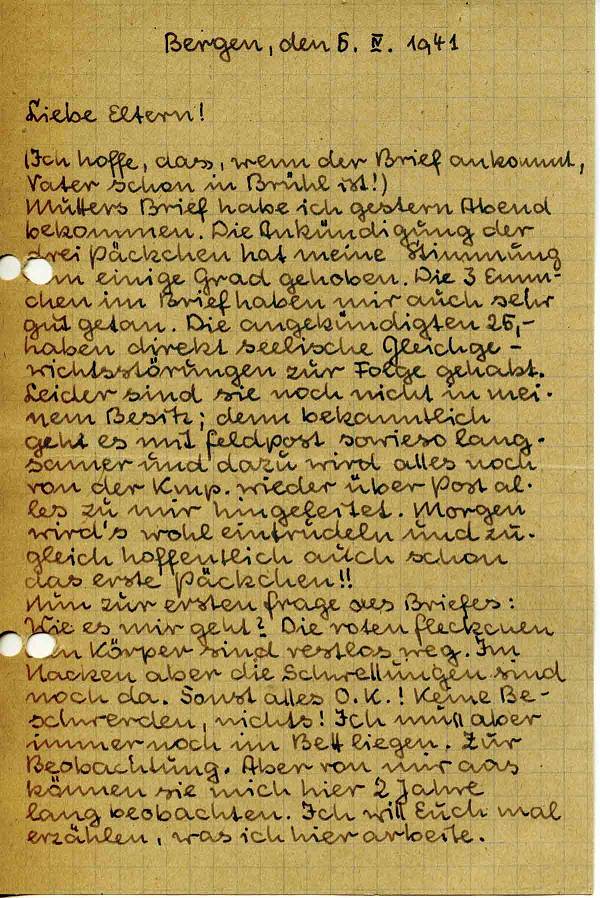 Bergen, den 6. IV. 1941
Liebe Eltern!
(Ich hoffe, dass, wenn der Brief ankommt,
Vater schon in Brühl ist!)
Mutters Brief habe ich gestern Abend
bekommen. Die Ankündigung der
drei Päckchen hat meine Stimmung
um einige Grad gehoben. Die 3 Emm-
chen im Brief haben mir auch sehr
gut getan. Die angekündigten 25,-
haben direkt seelische Gleichge-
wichtsstörungen zur Folge gehabt.
Leider sind sie noch nicht in mei-
nem Besitz; denn bekanntlich
geht es mit Feldpost sowieso lang-
samer und dazu wird alles noch
von der Kmp. wieder über Post al-
les zu mir hingeleitet. Morgen
wird's wohl eintrudeln und zu-
gleich hoffentlich auch schon
das erste Päckchen!!
Nun zur ersten Frage des Briefes:
Wie es mir geht? Die roten Fleckchen
am Körper sind restlos weg. Im
Nacken aber die Schwellungen sind
noch da. Sonst alles O.K.! Keine Be-
schwerden, nichts! Ich muß aber
immer noch im Bett liegen. Zur
Beobachtung. Aber von mir aus
können sie mich hier 2 Jahre
lang beobachten. Ich will Euch mal
erzählen, was ich hier arbeite.